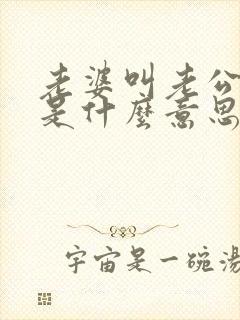 老婆叫老公
是什麼意思
宇宙是一碗湯